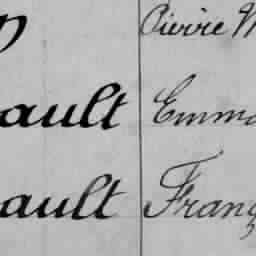 Pierre M
ault Emma
ault Franç